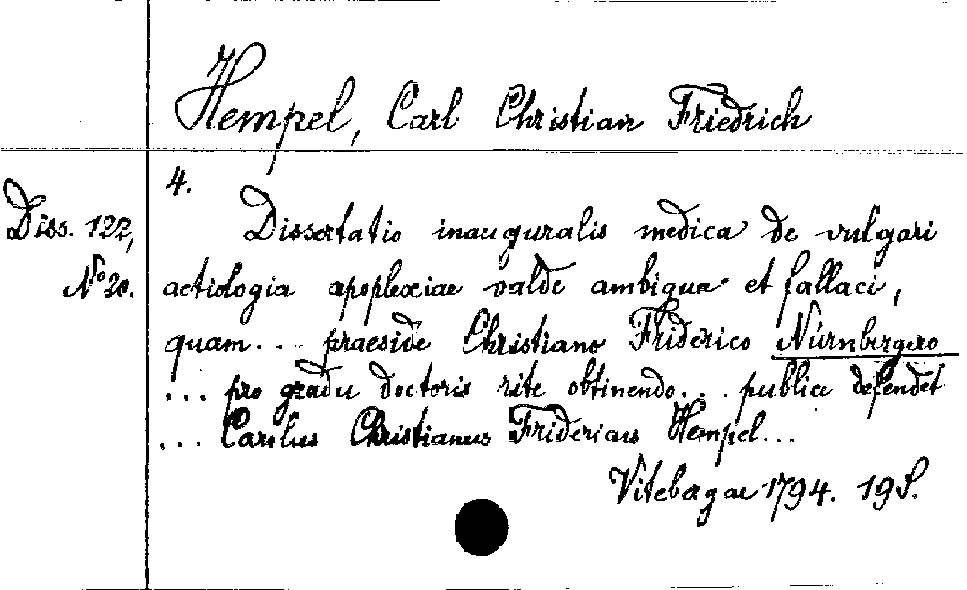 Hempel, Carl Christian Friedrich
4.
Diss. 122,
No 20.
Dissertatio inauguralis medica de vulgari
aetiologia apoplexiae valde ambigua et fallaci,
quam... praeside Christiano Friderico Nürnbergero
... pro gradu doctoris rite obtinendo... publice defendet
... Carolus Christianus Fridericus Hempel...
Vitebergae 1794. 19 S.